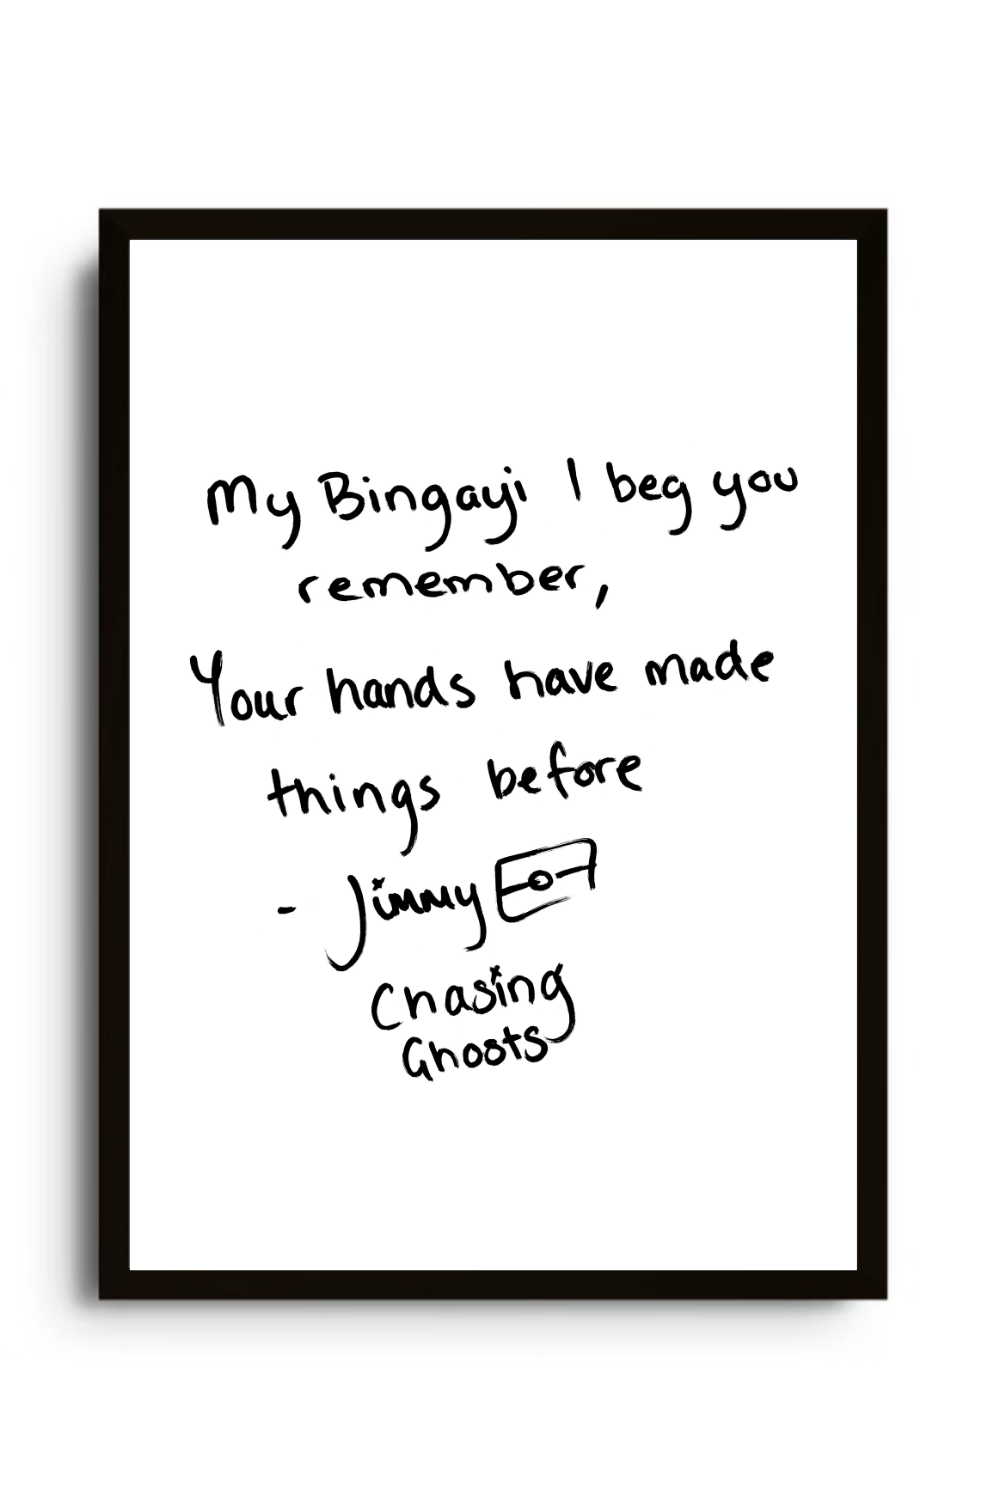 My Bingayi I beg you
remember,
Your hands have made
things before
- Jimmy
Chasing
Ghosts